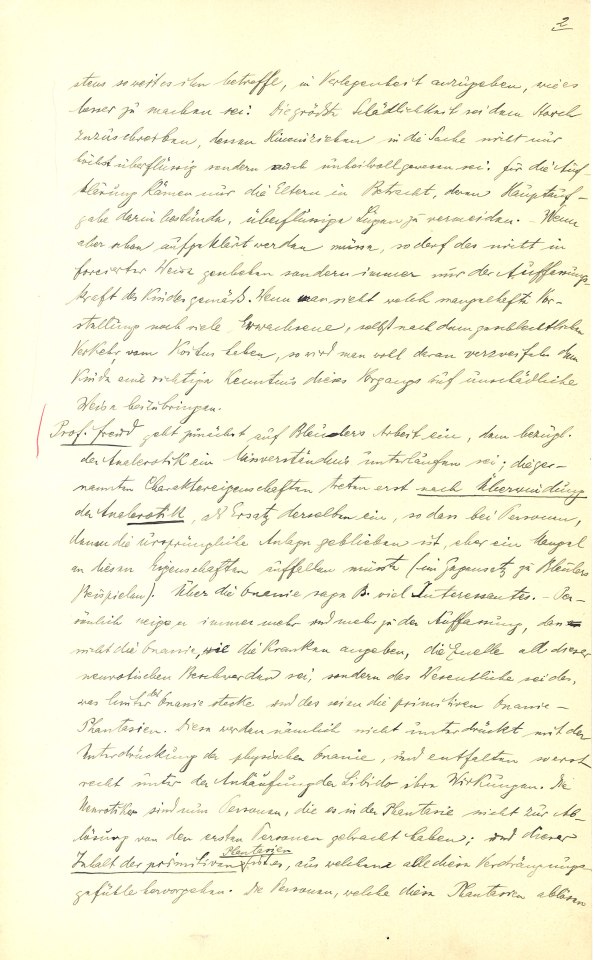 2
stens soweit es ihn betreffe, in Verlegenheit anzugeben, wie es
besser zu machen sei. Die größte Schädlichkeit sei dem Storch
zuzuschreiben, dessen Hineinziehen in die Sache nicht nur
höchst überflüssig sondern auch unheilvoll gewesen sei. Für die Auf-
klärung kämen nur die Eltern in Betracht, deren Hauptauf-
gabe darin bestünde, überflüssige Lügen zu vermeiden. – Wenn
aber schon aufgeklärt werden müsse, so darf das nicht in
forcierter Weise geschehen sondern immer nur der Auffassungs-
kraft des Kindes gemäß. Wenn man sieht welch mangelhafte Vor-
stellung noch viele Erwachsene, selbst nach dem geschlechtlichen
Verkehr, vom Koitus haben, so wird man wohl daran verzweifeln dem
Kinde eine richtige Kenntnis dieses Vorgangs auf unschädliche
Weise beizubringen.
Prof. Freud geht zunächst auf Bleulers Arbeit ein, dem bezügl.
der Analerotik ein Missverständnis unterlaufen sei; die ge-
nannten Charaktereigenschaften treten erst nach Überwindung
der Analerotik, als Ersatz derselben ein, so dass bei Personen,
denen die ursprüngliche Anlage geblieben ist, eher ein Mangel
an diesen Eigenschaften auffallen müsste (im Gegensatz zu Bleulers
Beispielen). Über die Onanie sage B. viel Interessantes. – Per-
sönlich neige er immer mehr und mehr zu der Auffassung, dass
nicht die Onanie, wie die Kranken angeben, die Quelle all dieser
neurotischen Beschwerden sei, sondern das Wesentliche sei das,
was hinter der Onanie stecke und das seien die primitiven Onanie-
Phantasien. Diese werden nämlich nicht unterdrückt mit der
Unterdrückung der physischen Onanie, und entfalten erst
recht unter der Anhäufung der Libido ihre Wirkungen. Die
Neurotiker sind nun Personen, die es in der Phantasie nicht zur Ab-
lösung von den ersten Personen gebracht haben; und dieser
Inhalt der primitiven Phantasien ist es, aus welchem alle diese Verdrängungs-
gefühle hervorgehen. Die Personen, welche diese Phantasien ablösen